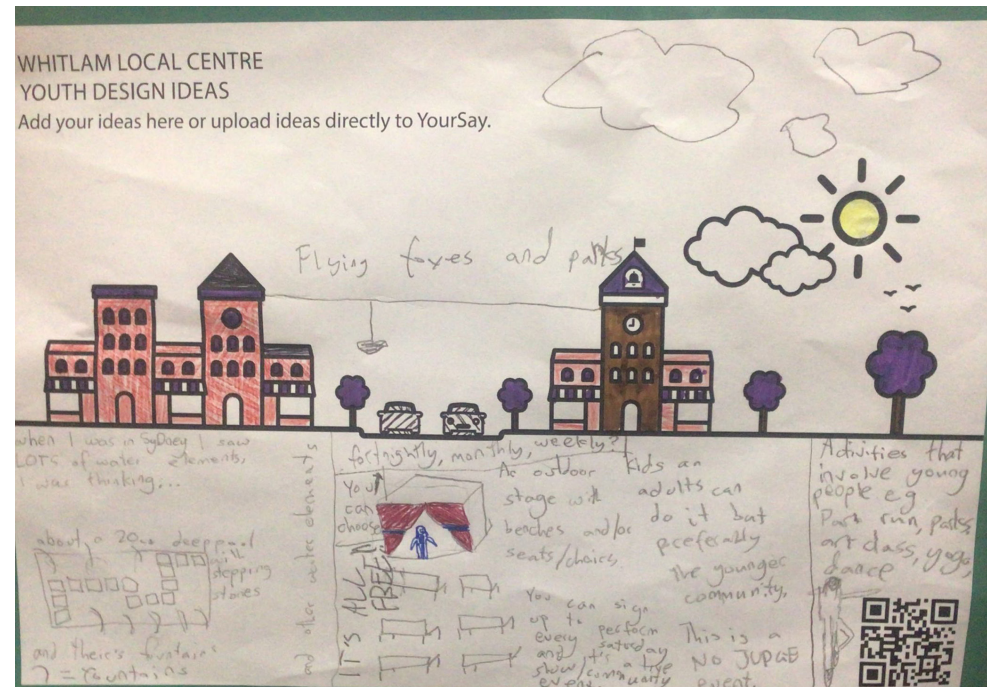 WHITLAM LOCAL CENTRE
YOUTH DESIGN IDEAS
Add your ideas here or upload ideas directly to YourSay.
Flying foxes and parks
when I was in SyDney I saw
LOTS of water elements,
I was thinking...
about a 20cm deep
stepping
stones
and theirs fountains
= fountains
and other water elements
fortnightly, monthly, weekly?
You
can
choose
IT'S ALL
FREE
An outdoor
stage with
benches and/or
seats/choices
You can sign
up to perform
every saturday
and it's a
show/community
event
Kids an
adults can
do it but
preferably
The younger
community,
This is a
NO JUDGE
event.
Activities that
involve young
people e.g
Park run, parks,
art class, yoga,
dance